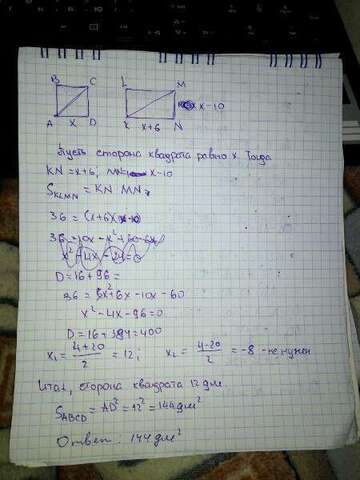 B C L M
x-10
A x D K x+6 N
Пусть сторона квадрата равно x. Тогда
KN = x+6, MN = x-10
S_KLMN = KN MN,
36 = (x+6)(x-10)
36 = 10x - x² + 60 - 6x
x² - 4x - 24 = 0
D = 16 + 96 =
36 = x² + 6x - 10x - 60
x² - 4x - 96 = 0
D = 16 + 384 = 400
x₁ = (4+20)/2 = 12; x₂ = (4-20)/2 = -8 - не нужен
Итак, сторона квадрата 12 дм.
S_ABCD = AD² = 12² = 144 дм²
Ответ. 144 дм²